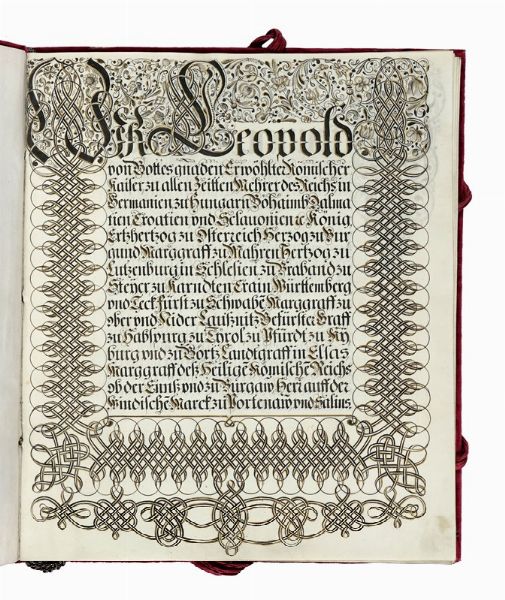 Wir Leopold
von Gottes gnaden Erwöhlter Römischer
Kaiser zu allen Zeitten Mehrer des Reichs in
Germanien zu Hungarn Böheimb Dalma
tien Croatien vnd Sclauonien ec König
Ertzhertzog zu Österreich Hertzog zu Bur
gund Marggraff zu Mähren Hertzog zu
Lutzenburg in Schlesien zu Braband zu
Steyer zu Kärndten Crain Württemberg
vnd Teck Fürst zu Schwabe Marggraff zu
ober vnd Nider Laußnitz Gefürste Graff
zu Habspurg zu Tyrol zu Pfürdt zu Ky
burg vnd zu Görtz Landtgraff in Elsas
Marggraff deß Heilige Römische Reichs
ob der Ennß vnd zu Burgaw Herr auf der
Windische Marck zu Portenaw vnd Salins